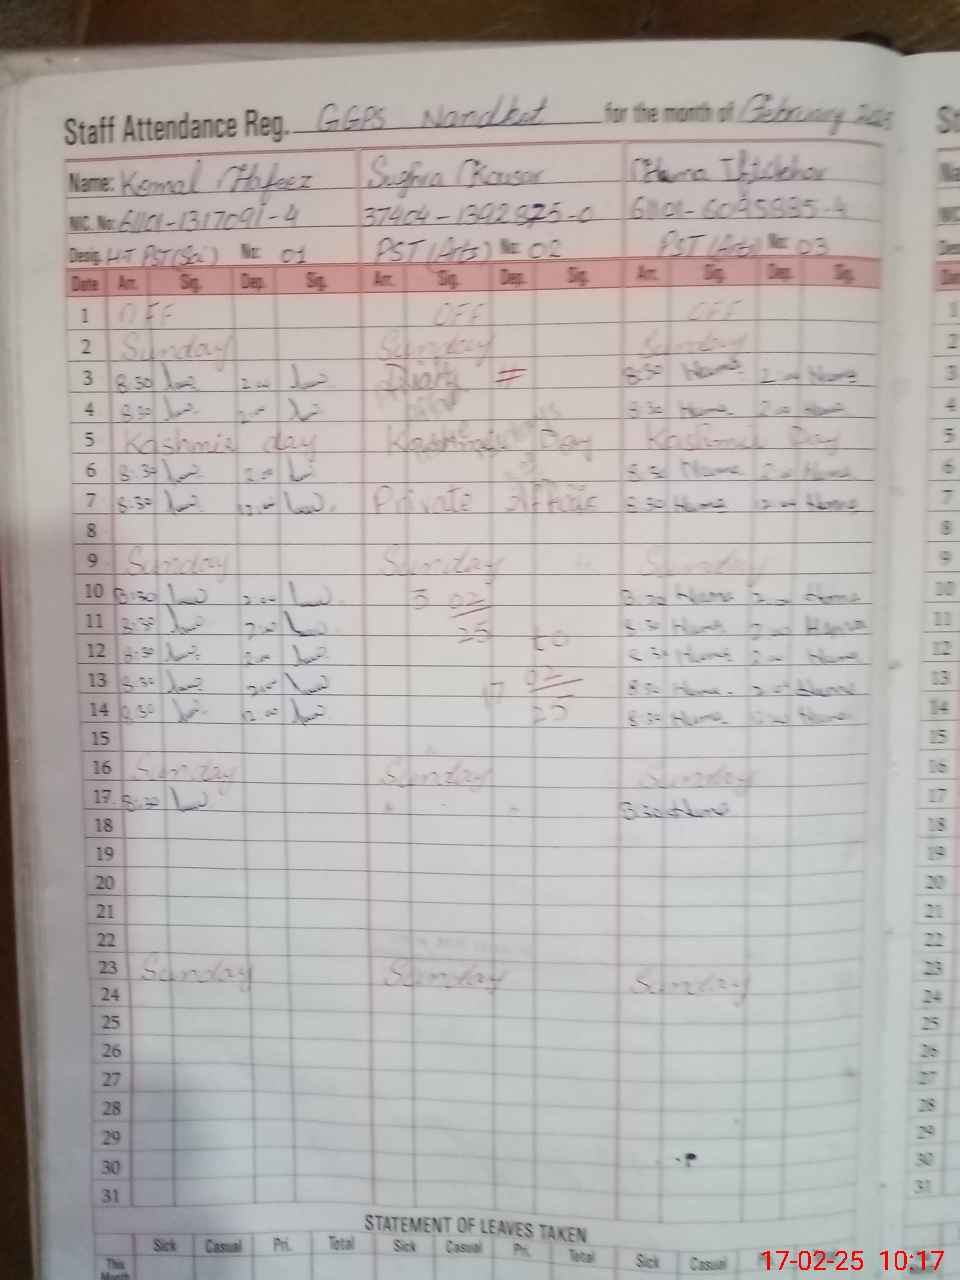 Staff Attendance Reg. GGPS Nandkot for the month of February 2025
Name: Komal Hafeez Sughra Kousar Huma Iftikhar
NIC. No: 61101-1317091-4 37404-1392875-0 61101-6095835-4
Desig. HT PST(Sci) No: 01 PST (Arts) No: 02 PST (Arts) No: 03
Date Arr. Sig. Dep. Sig. Arr. Sig. Dep. Sig. Arr. Sig. Dep. Sig.
1 OFF OFF OFF
2 Sunday Sunday Sunday
3 8:30 2:00 8:30 Huma 2:00 Huma
4 8:30 2:00 8:30 Huma 2:00 Huma
5 Kashmir day Kashmir Day Kashmir Day
6 8:30 2:00 8:30 Huma 2:00 Huma
7 8:30 12:00 Private Affair 8:30 Huma 12:00 Huma
8
9 Sunday Sunday Sunday
10 8:30 2:00 02 8:30 Huma 2:00 Huma
11 8:30 2:00 25 to 8:30 Huma 2:00 Huma
12 8:30 2:00 8:30 Huma 2:00 Huma
13 8:30 2:00 17 02 8:30 Huma 2:00 Huma
14 8:30 12:00 25 8:30 Huma Huma
15
16 Sunday Sunday Sunday
17 8:30 8:30 Huma
18
19
20
21
22
23 Sunday Sunday Sunday
24
25
26
27
28
29
30
31
STATEMENT OF LEAVES TAKEN
Sick Casual Pri. Total Sick Casual Pri. Total Sick Casual
This Month
17-02-25 10:17